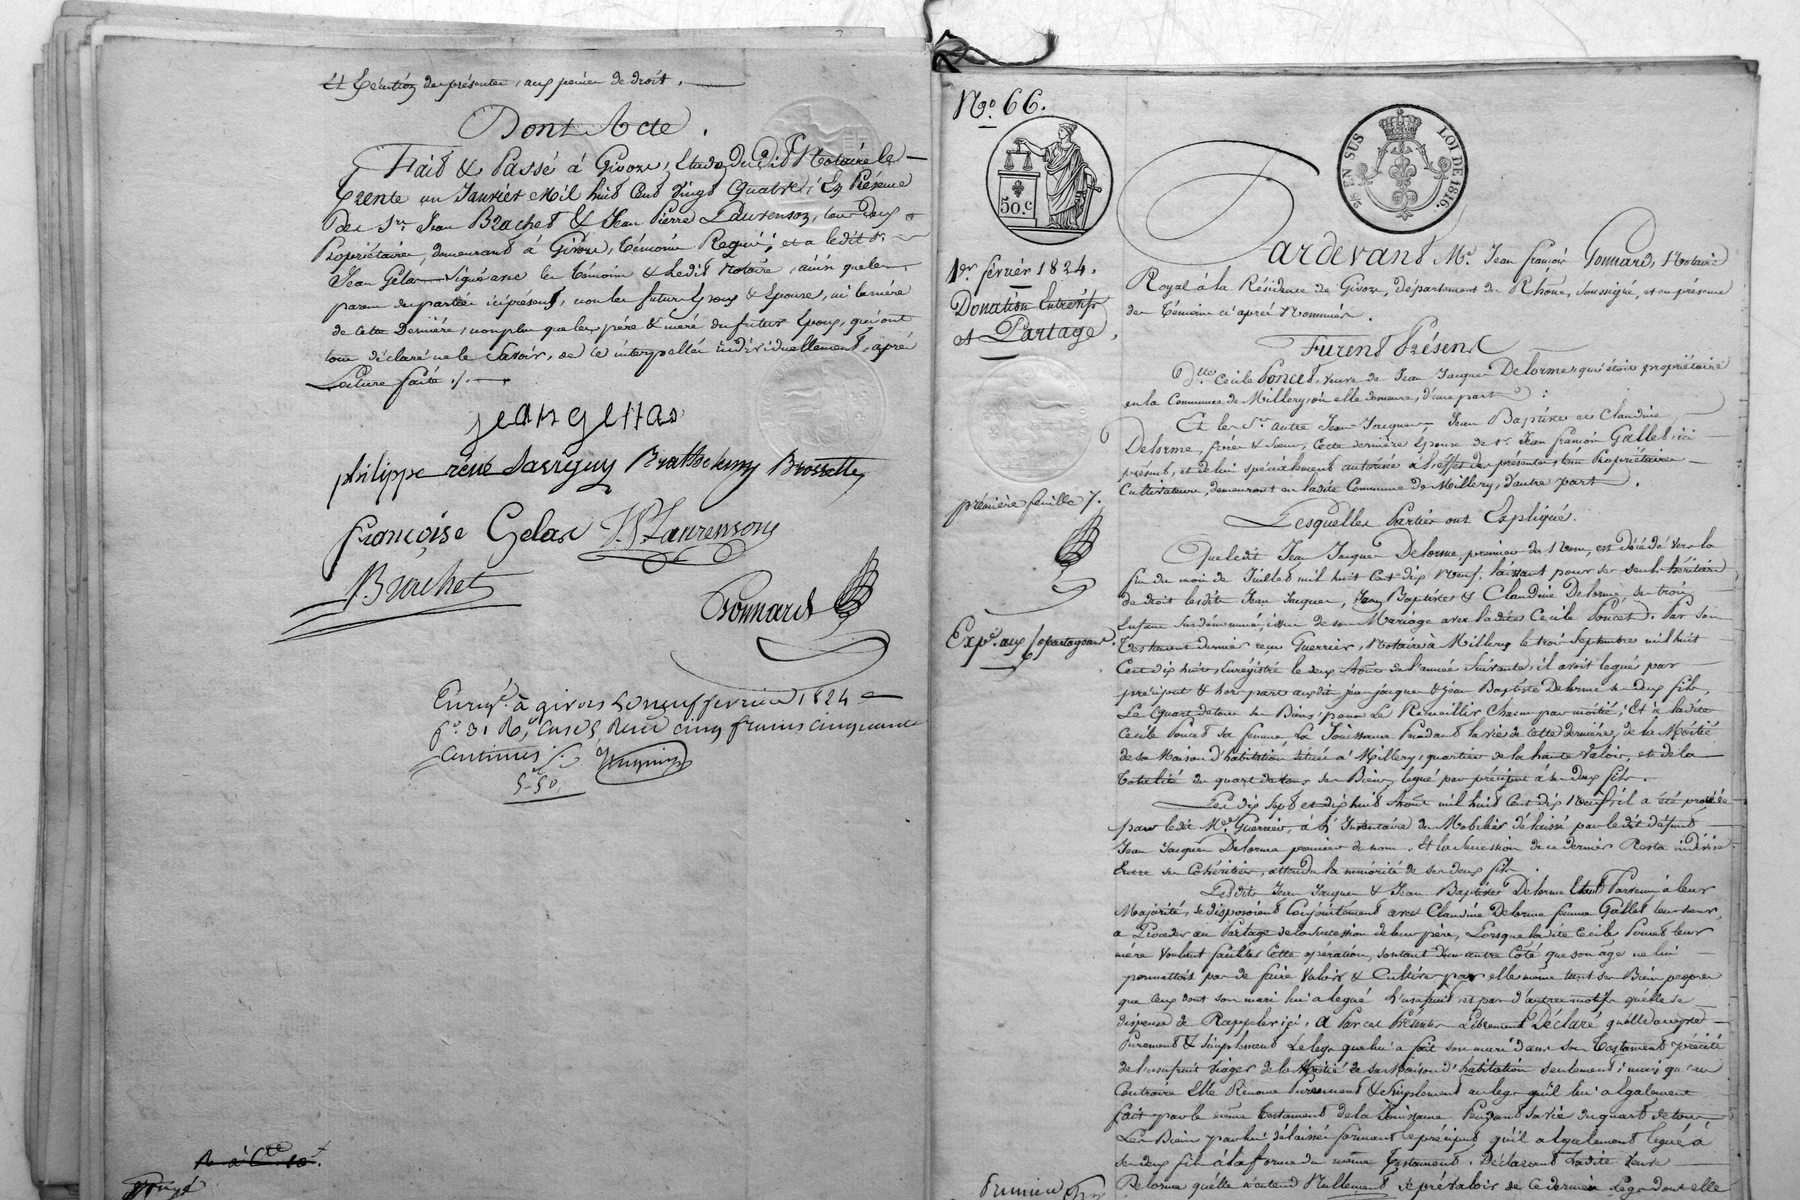 et exécution des présentes, aux peines de droit.
Dont Acte.
Fait & Passé à Givors, Etude dudit Notaire le
trente un Janvier Mil huit Cent Vingt Quatre; En Présence
des Srs Jean Brachet & Jean Pierre Laurenson, tous deux
Propriétaires, demeurant à Givors, témoins Requis; et a ledit Sr
Jean Gelas signé avec les témoins & ledit Notaire, ainsi que les
parens des parties ici présens, non les futurs Epoux & Epouse, ni la mère
de cette dernière, non plus que les père & mère du futur Epoux, qui ont
tous déclaré ne le Savoir, de ce interpellés individuellement, après
Lecture faite./.
jean gellas
philippe rené Savriguy Barthelemy Brossette
françoise Gelas J. P. Laurenson
Brachet
Gonnard
Enregé à givors le neuf fevrier 1824
fo 31 Ro, Cases Reçu cinq francs cinquante
Centimes
5-50
No. 66.
50.c
EN SUS LOI DE 1816.
1er février 1824.
Donation Entrevifs
et Partage.
première feuille
Expn. aux Copartageans.
Pardevant Me. Jean françois Gonnard, Notaire
Royal à la Résidence de Givors, département du Rhône, soussigné, et en présence
des témoins ci après Nommés.
Furent Présens
Dlle Cécile Poncet, veuve de Jean Jacques Delorme, qui étoit propriétaire
en la Commune de Millery, où elle demeure, d'une part;
Et les Srs autre Jean Jacques, Jean Baptiste et Claudine
Delorme, frères & sœur, cette dernière épouse de Sr. Jean françois Gallet ici
présent, et de lui spécialement autorisée à l'effet des présentes, tous Propriétaires
Cultivateurs, demeurant en ladite Commune de Millery, d'autre part.
Lesquelles Parties ont Expliqué.
Que ledit Jean Jacques Delorme, premier du Nom, est décédé vers la
fin du mois de Juillet mil huit Cent dix Neuf, laissant pour ses seuls héritiers
de droit lesdits Jean Jacques, Jean Baptiste & Claudine Delorme, ses trois
Enfans susdénommés, issus de son Mariage avec ladite Cécile Poncet. Par son
Testament dernier reçu Guerrier, Notaire à Millery le trois Septembre mil huit
Cent dix huit, Enregistré le deux Août de l'année Suivante, il avoit légué par
préciput & hors part auxdits jean jacques & jean Baptiste Delorme ses deux fils,
Le Quart de tous ses Biens, pour le Recueillir Chacun par moitié; Et à ladite
Cécile Poncet sa femme La Jouissance Pendant la vie de cette dernière, de la Moitié
de sa Maison d'habitation située à Millery, quartier de la haute Valois, et de la
totalité du quart de tous ses Biens, légué par préciput à ses deux fils.
Les dix sept et dix huit Août mil huit Cent dix Neuf, il a été procédé
par ledit Me. Guerrier, à l'Inventaire du Mobilier délaissé par ledit défunt
Jean Jacques Delorme premier du nom. Et la Succession de ce dernier Resta indivise
Entre ses Cohéritiers, attendu la minorité de ses deux fils.
Lesdits Jean Jacques & Jean Baptiste Delorme Etant Parvenus à leur
Majorité, se disposoient Conjointement avec Claudine Delorme femme Gallet leur sœur,
à Procéder au Partage de la Succession de leur père, Lorsque ladite Cécile Poncet leur
mère Voulant faciliter Cette opération, sentant d'un autre Côté que son âge ne lui
permettoit pas de faire Valoir & Cultiver par elle même tant ses Biens propres
que Ceux dont son mari lui a légué L'usufruit, et par d'autres motifs qu'elle se
dispense de Rappeler ici, a Par ces Présentes Librement Déclaré
Purement & Simplement Le legs que lui a fait son mari dans son Testament précité
de l'usufruit viager de la Moitié de sa Maison d'habitation seulement; mais qu'au
Contraire Elle Renonce Purement & Simplement au legs qu'il lui a Egalement
fait par le même Testament de la Jouissance Pendant sa vie du quart de tous
Les Biens par lui délaissés formant le préciput qu'il a Egalement légué à
ses deux fils à la forme du même Testament. Déclarant Ladite Veuve
Delorme qu'elle n'entend Nullement se prévaloir de ce dernier Legs dont elle